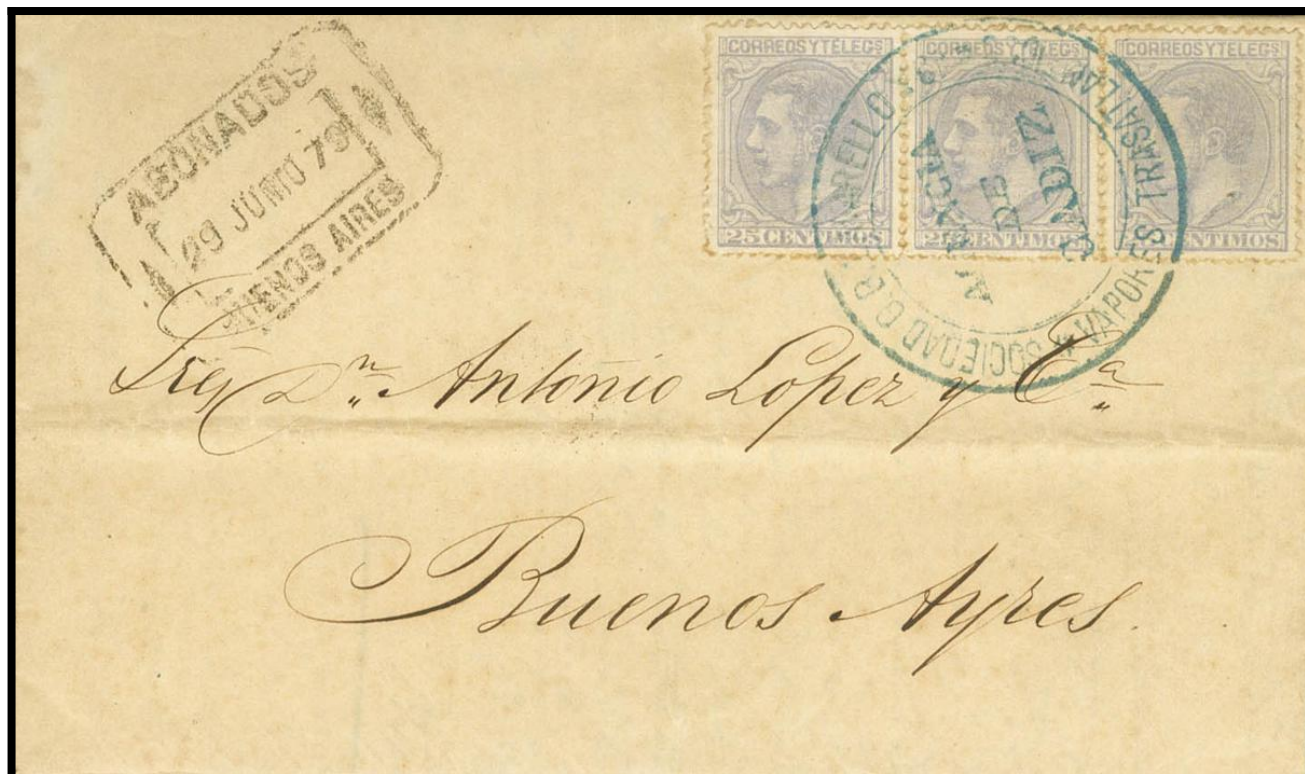 ABONADOS
29 JUNIO 79
BUENOS AIRES
CORREOS Y TELEGS
25 CENTIMOS
CORREOS Y TELEGS
25 CENTIMOS
CORREOS Y TELEGS
CENTIMOS
SOCIEDAD
VAPORES TRASATLAN
AGENCIA
DE
CADIZ
Sres Dn Antonio Lopez y Ca
Buenos Ayres.